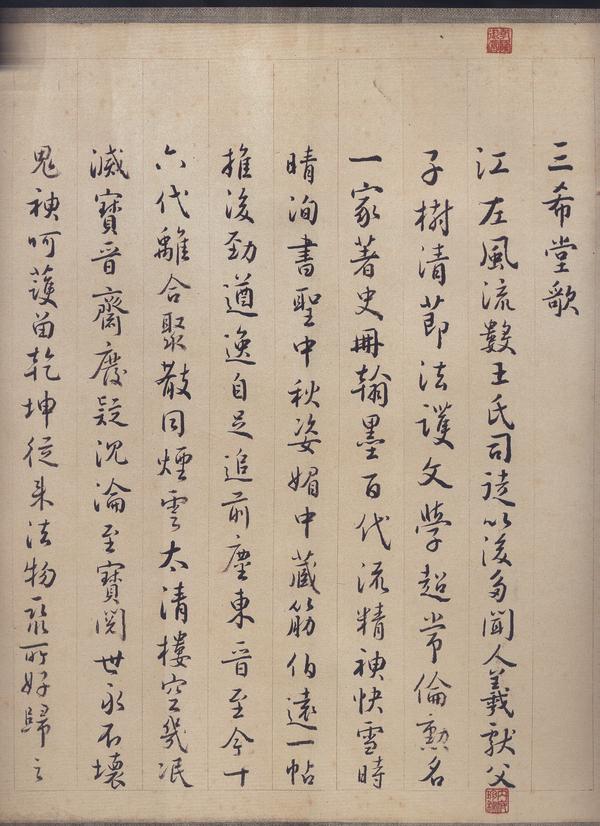 三希堂歌
江左風流數王氏司徒以後多聞人羲獻父
子樹清節法護文學超常倫勲名
一家著史冊翰墨百代流精神快雪時
晴洵書聖中秋姿媚中藏筋伯遠一帖
推後勁遒逸自足追前塵東晉至今十
六代離合聚散同煙雲太清樓空幾泯
滅寶晉齋廢疑沉淪至寶閱世永不壞
鬼神呵護留乾坤從來法物聚所好歸之